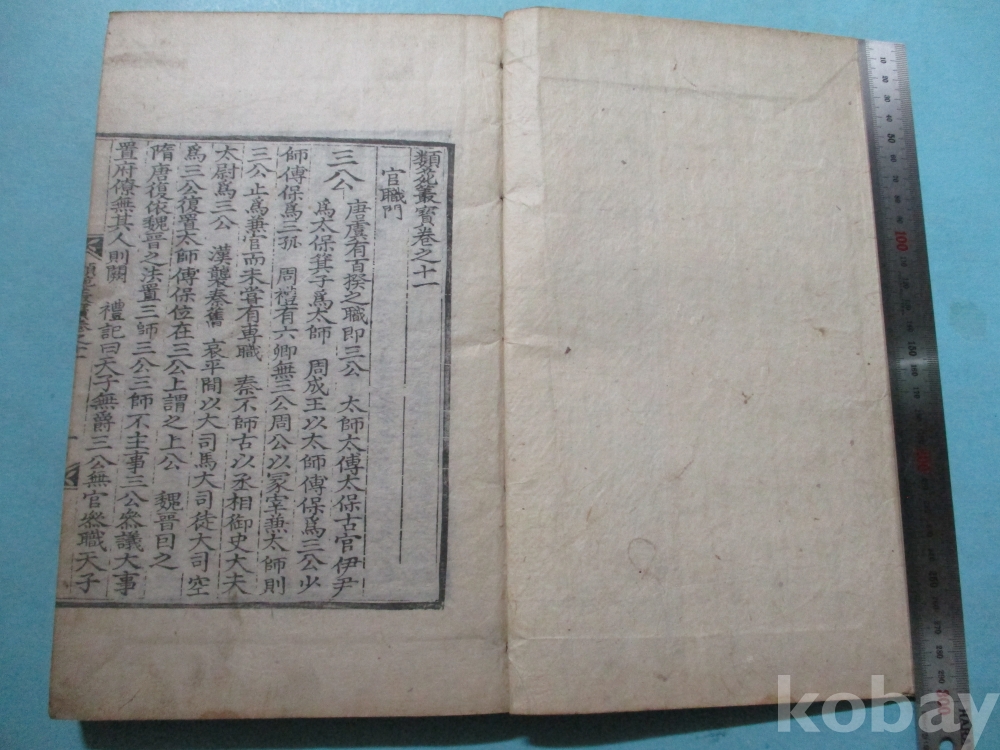 類苑叢寶卷之十一
官職門
三公 唐虞有百揆之職即三公 太師太傅太保古官伊尹
爲太保箕子爲太師 周成王以太師傅保爲三公少
師傅保爲三孤 周禮有六卿無三公周公以冢宰兼太師則
三公止爲兼官而未嘗有專職 秦不師古以丞相御史大夫
太尉爲三公 漢襲秦舊 哀平間以大司馬大司徒大司空
爲三公復置太師傅保位在三公上謂之上公 魏晉因之
隋唐復依魏晉之法置三師三公三師不主事三公叅議大事
置府僚無其人則闕 禮記曰天子無爵三公無官叅職天子
kobay